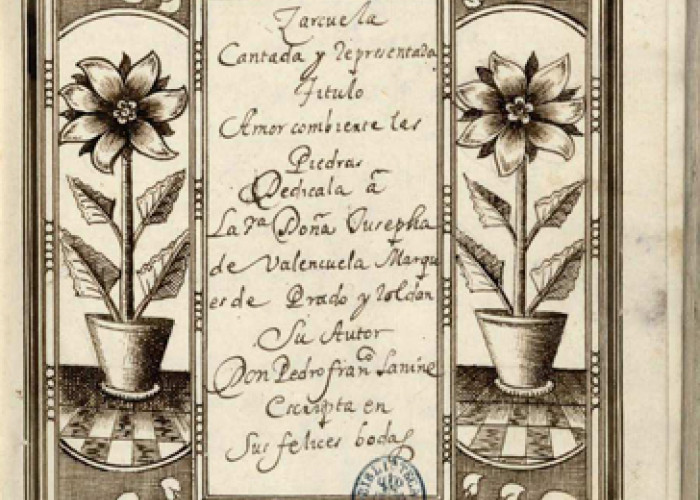 Zarcuela
Cantada y representada
Titulo
Amor combiente las
Piedras
Dedicala â
La Sra Doña Jusepha
de Valencuela Marqu
es de Prado y roldan
Su Autor
Don Pedro franco Lanine
Escripta en
Sus felices bodas
BIBLIOTECA